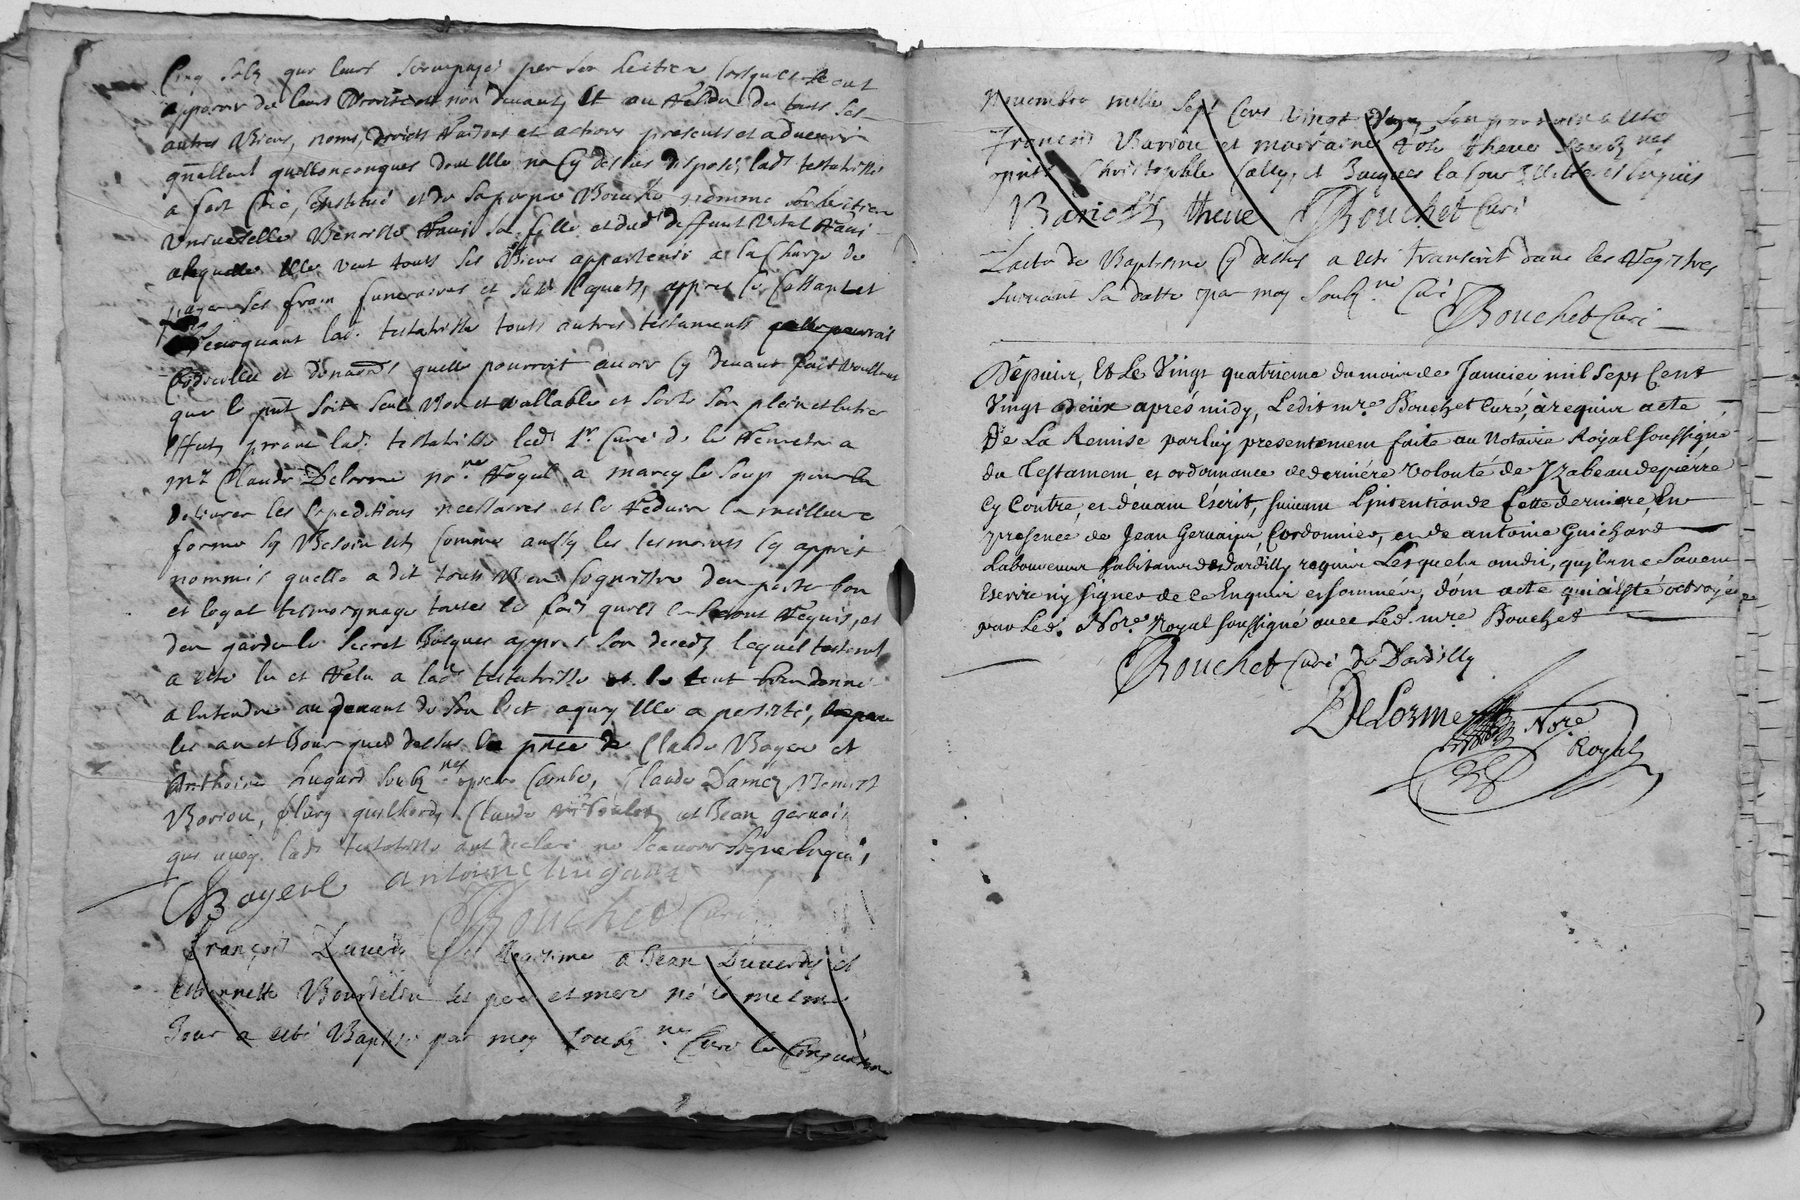 Cinq solz qui leurs seront payés par son heritiere lorsquils
apparoir de leurs droits et non devant, Et au Residu de touts ses
autres Biens, noms, droicts Raisons et actions presents et advenir
quellesquelconques dont Elle na cy dessus disposé, lad. testatrisse
a fait Créé, Institué et de sa propre Bouche nommé son heritiere
universelle Benoiste sa fille et dud. deffunt Vital
a laquelle Elle veut touts ses Biens appartenir a la Charge de
payer ses frais funeraires et susd. legats, appres Cassant et
Revoquant lad. testatrisse touts autres testaments
Codicilles et donaons quelle pourroit avoir cy devant fait voullant
que le pnt soit seul Bon et vallable et sorte son plein et entier
Effet, prome lad. testatrisse led. Sr. Curé de le Remettre a
Mr. Claude Delorme nore. Royal a marcy le loup pour En
delivrer les Expeditions necessaires et le Reduire En meilleure
forme sy Besoin est, Comme aussy les tesmoins cy appres
nommés quelle a dit touts Bien Cognoistre den porter bon
et loyal tesmoignage toutes les fois quils En seront Requis, et
den garder le secret Jusques appres son deced, lequel testament
a esté lu et Relu a lad. testatrisse et le tout
a Entendre au devant de son lict a quoy Elle a persisté,
les an et Jour que dessus En pnce de Claude Boyer et
Anthoine hugard soubz.nes Claude Benoist
Boriou, fleury guilhard, Claude et Jean gervais
qui avec lad. testatrisse ont declaré ne scavoir signer Enquis,
Boyer antoine hugard
Bouchet Curé
françois Duverdy fils legitime a Jean Duverdy et
Estiennette Bourdelin ses pere et mere né le mesme
Jour a esté Baptisé par moy soubz.né Curé le Cinquiesme
novembre mille sept Cens vingt son parrain a esté
François Barriou et marraine theve soubz.nes
Christouble Cally, et Jacques la four Illitere Enquis
Bariout theve Bouchet Curé
Lacte de Baptesme cy dessus a esté transcrit dans les Registres
suivant sa datte par moy soubz.né Curé
Bouchet Curé
Dépuis, Et Le Vingt quatrieme du mois de Janvier mil Sept Cent
Vingt deüx aprés midy, Ledit mre. Bouchet Curé, à requis acte
De La Remise par luy presentement faite au Notaire Royal soussigné
du Testament et ordonnance de derniére volonté de Yzabeau depierre
Cy Contre, et devant Escrit, suivant L'intention de Cette derniere, En
presence de Jean Gervais Cordonnier, et de antoine Guichard
Laboureur habitants de dardilly requis Lesquels ont dit, quils ne Savent
Escrire ny signer de ce Enquis et sommés, dont acte qui a Esté octroyé
par Led. Nore. Royal soussigné avec Led. mre. Bouchet
Bouchet Curé de Dardilly
DeLorme Nre.
Royal